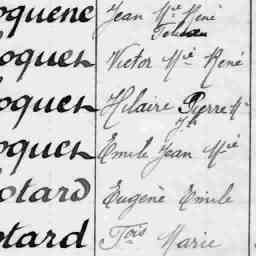 oquene Jean Mie René
oquet Victor Mie René
oquet Hilaire Pierre Mie
oquet Emile Jean Mie
otard Eugène Emile
otard Fois Marie